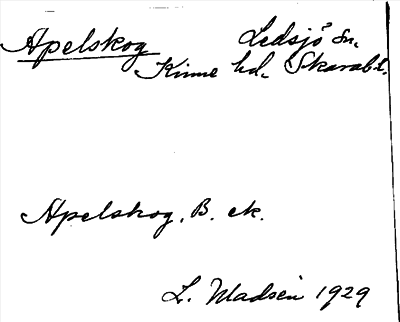 Apelskog Ledsjö sn.
Kinne hd. Skarab.l.
Apelskog, B. ek.
L. Madsén 1929